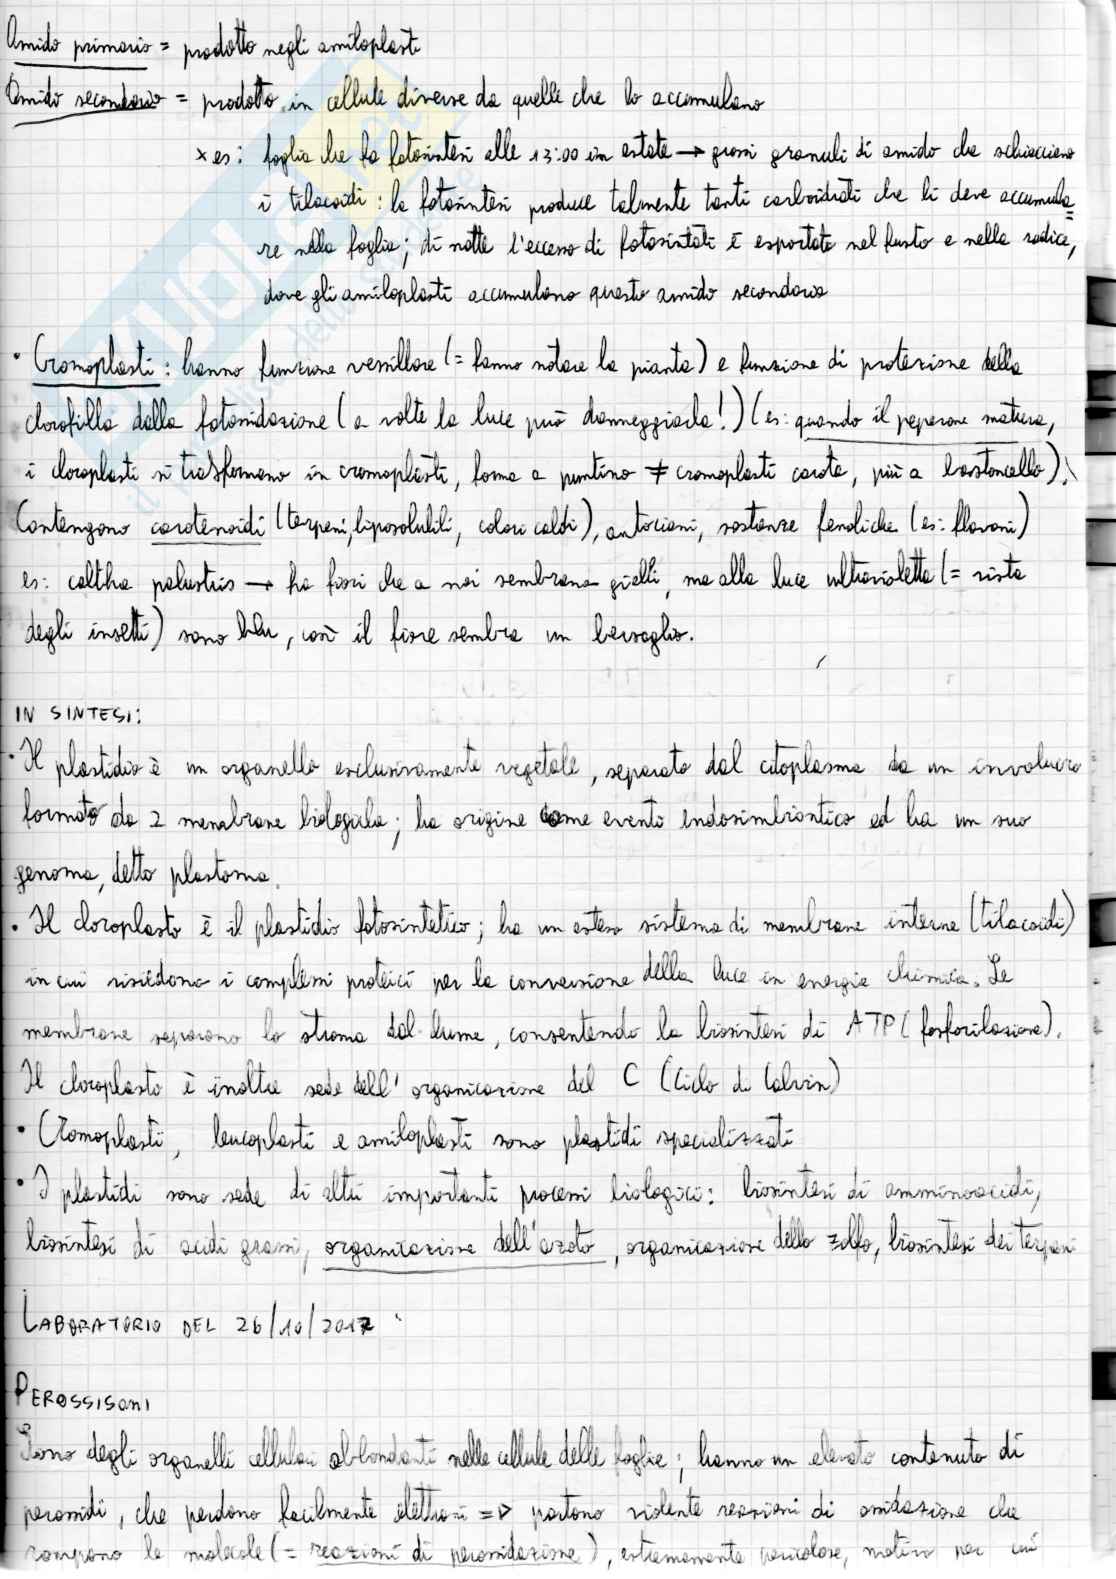 Amido primario = prodotto negli amiloplasti
Amido secondario = prodotto in cellule diverse da quelle che lo accumulano
x es: foglia che fa fotosintesi alle 13:00 in estate → grossi granuli di amido che schiacciano
i tilacoidi: la fotosintesi produce talmente tanti carboidrati che li deve accumula=
re nella foglia; di notte l'eccesso di fotosintati è esportato nel fusto e nella radice,
dove gli amiloplasti accumulano questo amido secondario
• Cromoplasti: hanno funzione vessillare (= fanno notare la pianta) e funzione di protezione della
clorofilla dalla fotossidazione (a volte la luce può danneggiarla!) (es: quando il peperone matura,
i cloroplasti si trasformano in cromoplasti, forma a puntino ≠ cromoplasti carota, più a bastoncello).
Contengono carotenoidi (terpeni, liposolubili, colori caldi), antociani, sostanze fenoliche (es: flavoni)
es: caltha palustris → ha fiori che a noi sembrano gialli, ma alla luce ultravioletta (= vista
degli insetti) sono blu, così il fiore sembra un bersaglio.
IN SINTESI:
• Il plastidio è un organello esclusivamente vegetale, separato dal citoplasma da un involucro
formato da 2 membrane biologiche; ha origine come evento endosimbiontico ed ha un suo
genoma, detto plastoma.
• Il cloroplasto è il plastidio fotosintetico; ha un esteso sistema di membrane interne (tilacoidi)
in cui risiedono i complessi proteici per la conversione della luce in energia chimica. Le
membrane separano lo stroma dal lume, consentendo la biosintesi di ATP (fosforilazione).
Il cloroplasto è inoltre sede dell'organicazione del C (Ciclo di Calvin)
• Cromoplasti, leucoplasti e amiloplasti sono plastidi specializzati
• I plastidi sono sede di altri importanti processi biologici: biosintesi di amminoacidi,
biosintesi di acidi grassi, organicazione dell'azoto, organicazione dello zolfo, biosintesi dei terpeni
LABORATORIO DEL 26/10/2017
PEROSSISOMI
Sono degli organelli cellulari abbondanti nelle cellule delle foglie; hanno un elevato contenuto di
perossidi, che perdono facilmente elettroni => partono violente reazioni di ossidazione che
rompono le molecole (= reazioni di perossidazione), estremamente pericolose, motivo per cui